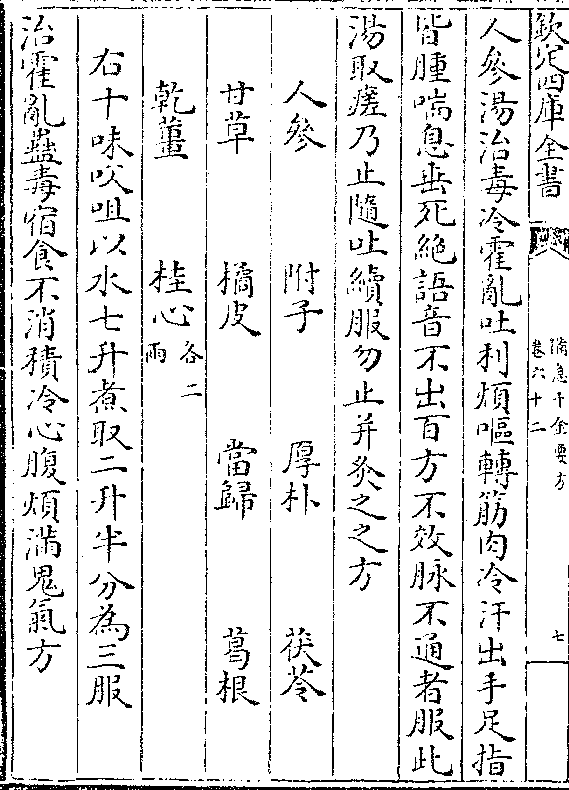 欽定四庫全書
備急千金要方
卷六十二
七
人參湯治毒冷霍亂吐利煩嘔轉筋肉冷汗出手足指
皆腫喘息垂死絶語音不出百方不效脉不通者服此
湯取瘥乃止隨吐續服勿止并灸之之方
人參 附子 厚朴 茯苓
甘草 橘皮 當歸 葛根
乾薑 桂心各二兩
右十味㕮咀以水七升煮取二升半分為三服
治霍亂蠱毒宿食不消積冷心腹煩滿鬼氣方